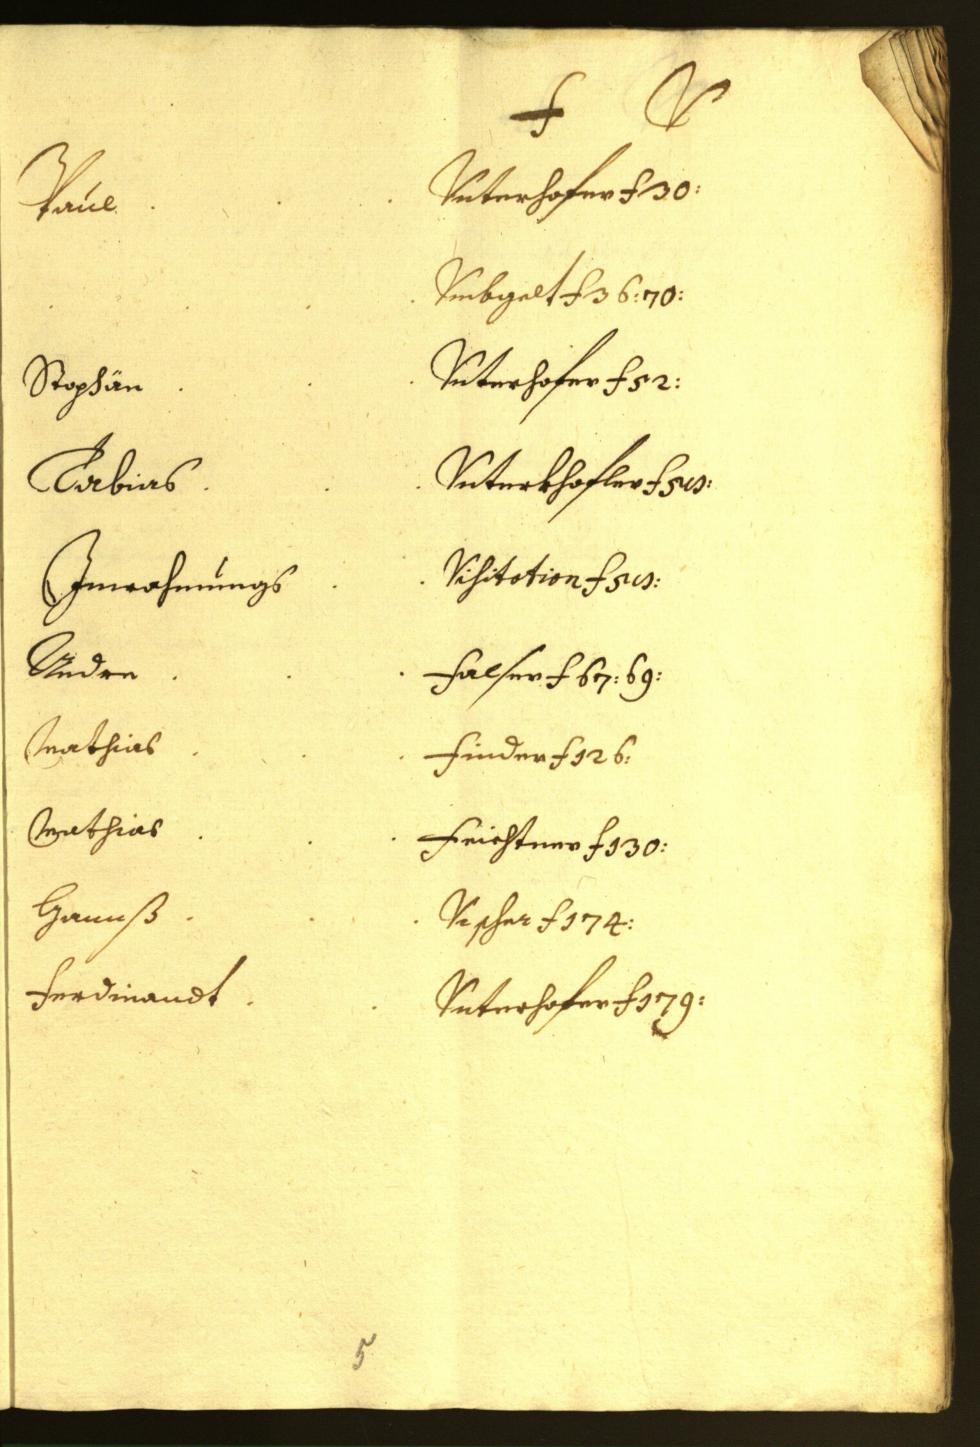 F V
Paul . . . Vnterhofer f 30:
. . . Vmbgelt f 36: 70:
Stephän . . . Vnterhofer f 52:
Tobias . . . Vnterkhofler f
. . Visitation f
Andre . . . Falser f 67: 69:
Mathias . . . Finder f 126:
Mathias . . . Feichtner f 130:
Hannß . . . f 174:
Ferdinandt . . Vnterhofer f 179:
5